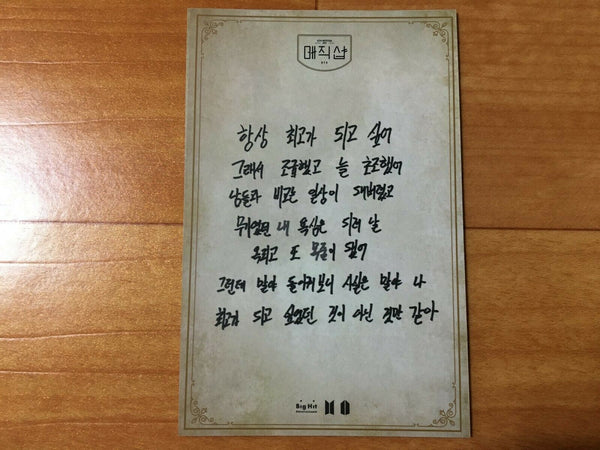 매직샵
항상 최고가 되고 싶어
그래서 조급했고 늘 초조했어
남들과 비교는 일상이 돼버렸고
무기였던 내 욕심은 되려 날
옥죄고 또 목줄이 됐어
그런데 말야 돌이켜보니 사실은 말야 나
최고가 되고 싶었던 것이 아닌 것만 같아
Big Hit